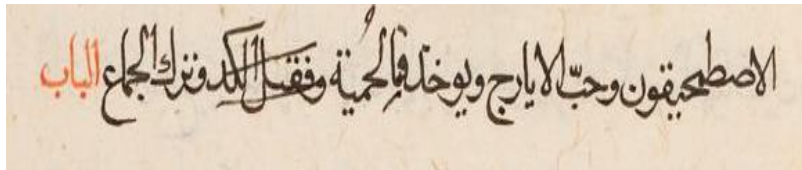 الاصطمحيقون وحبّ الايارج ويوخذ في الحمية وفقد الكد وترك الجماع الباب